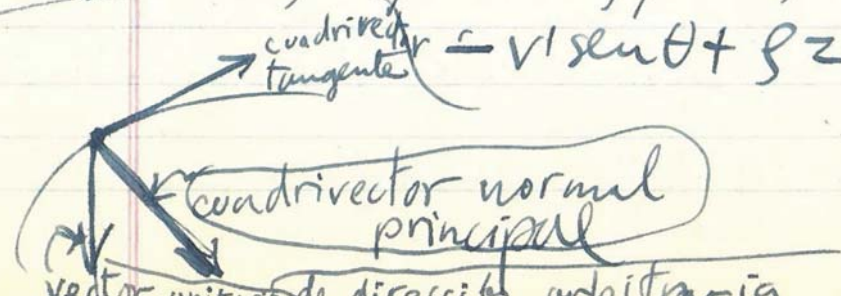 cuadrivector
tangente
= v' sen θ + ρ z
cuadrivector normal
principal
vector unitario de dirección arbitraria